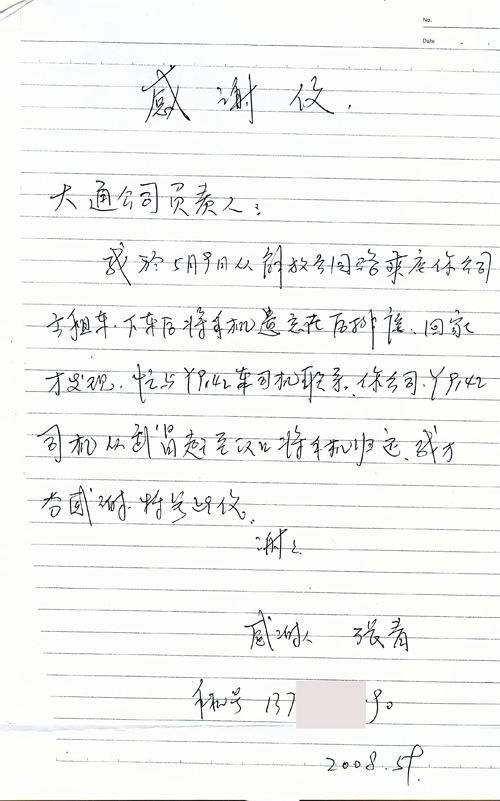 No.
Date
感谢信.
大通公司负责人:
我于5月9日从解放公园路乘座你公司
出租车.下车后将手机遗忘在后排座.回家
才发现.忙与Y9142车司机联系.你公司.Y9142
司机从武昌赶至汉口将手机归还.我万
分感谢.特写此信.
谢谢
感谢人 张青
手机号 137 90
2008.5.9.